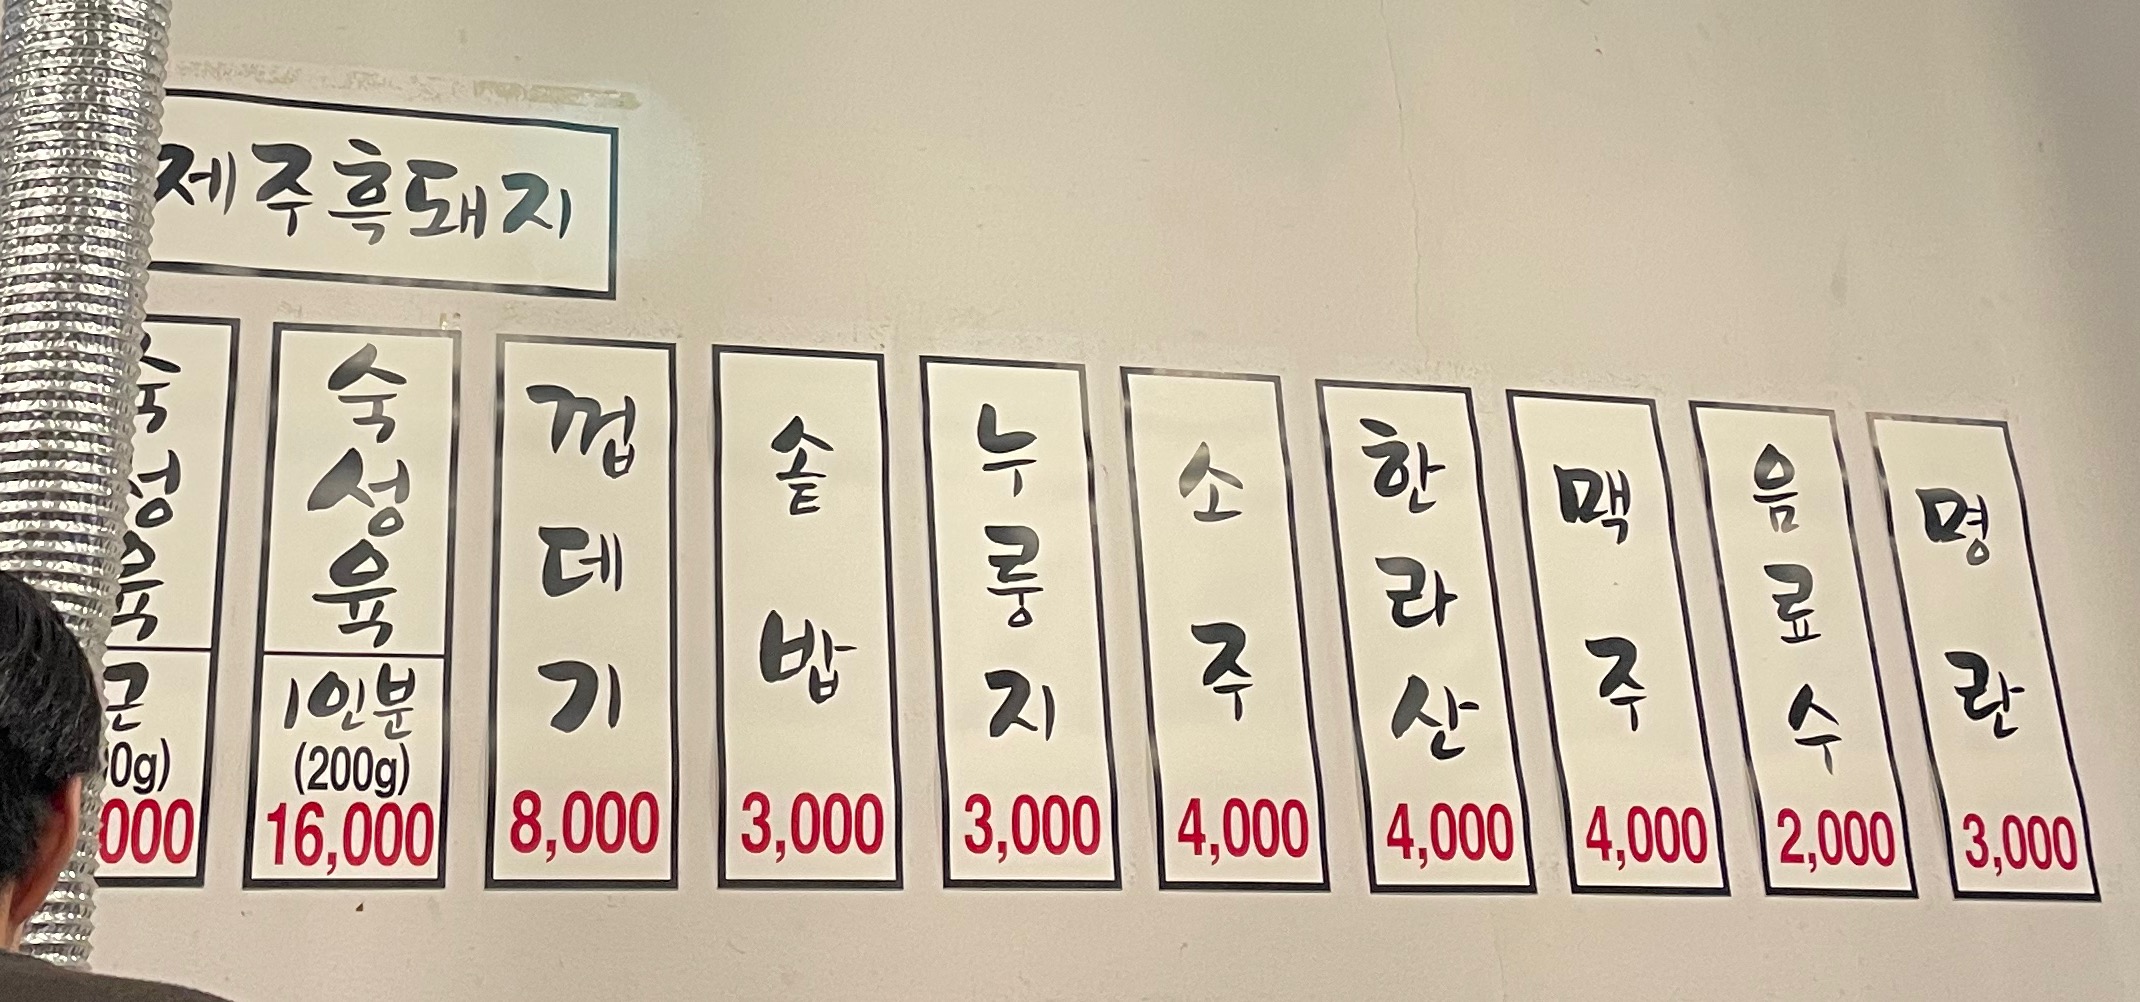 제주흑돼지
숙성육
근
0g)
000
숙성육
1인분
(200g)
16,000
껍데기
8,000
솥밥
3,000
누룽지
3,000
소주
4,000
한라산
4,000
맥주
4,000
음료수
2,000
명란
3,000